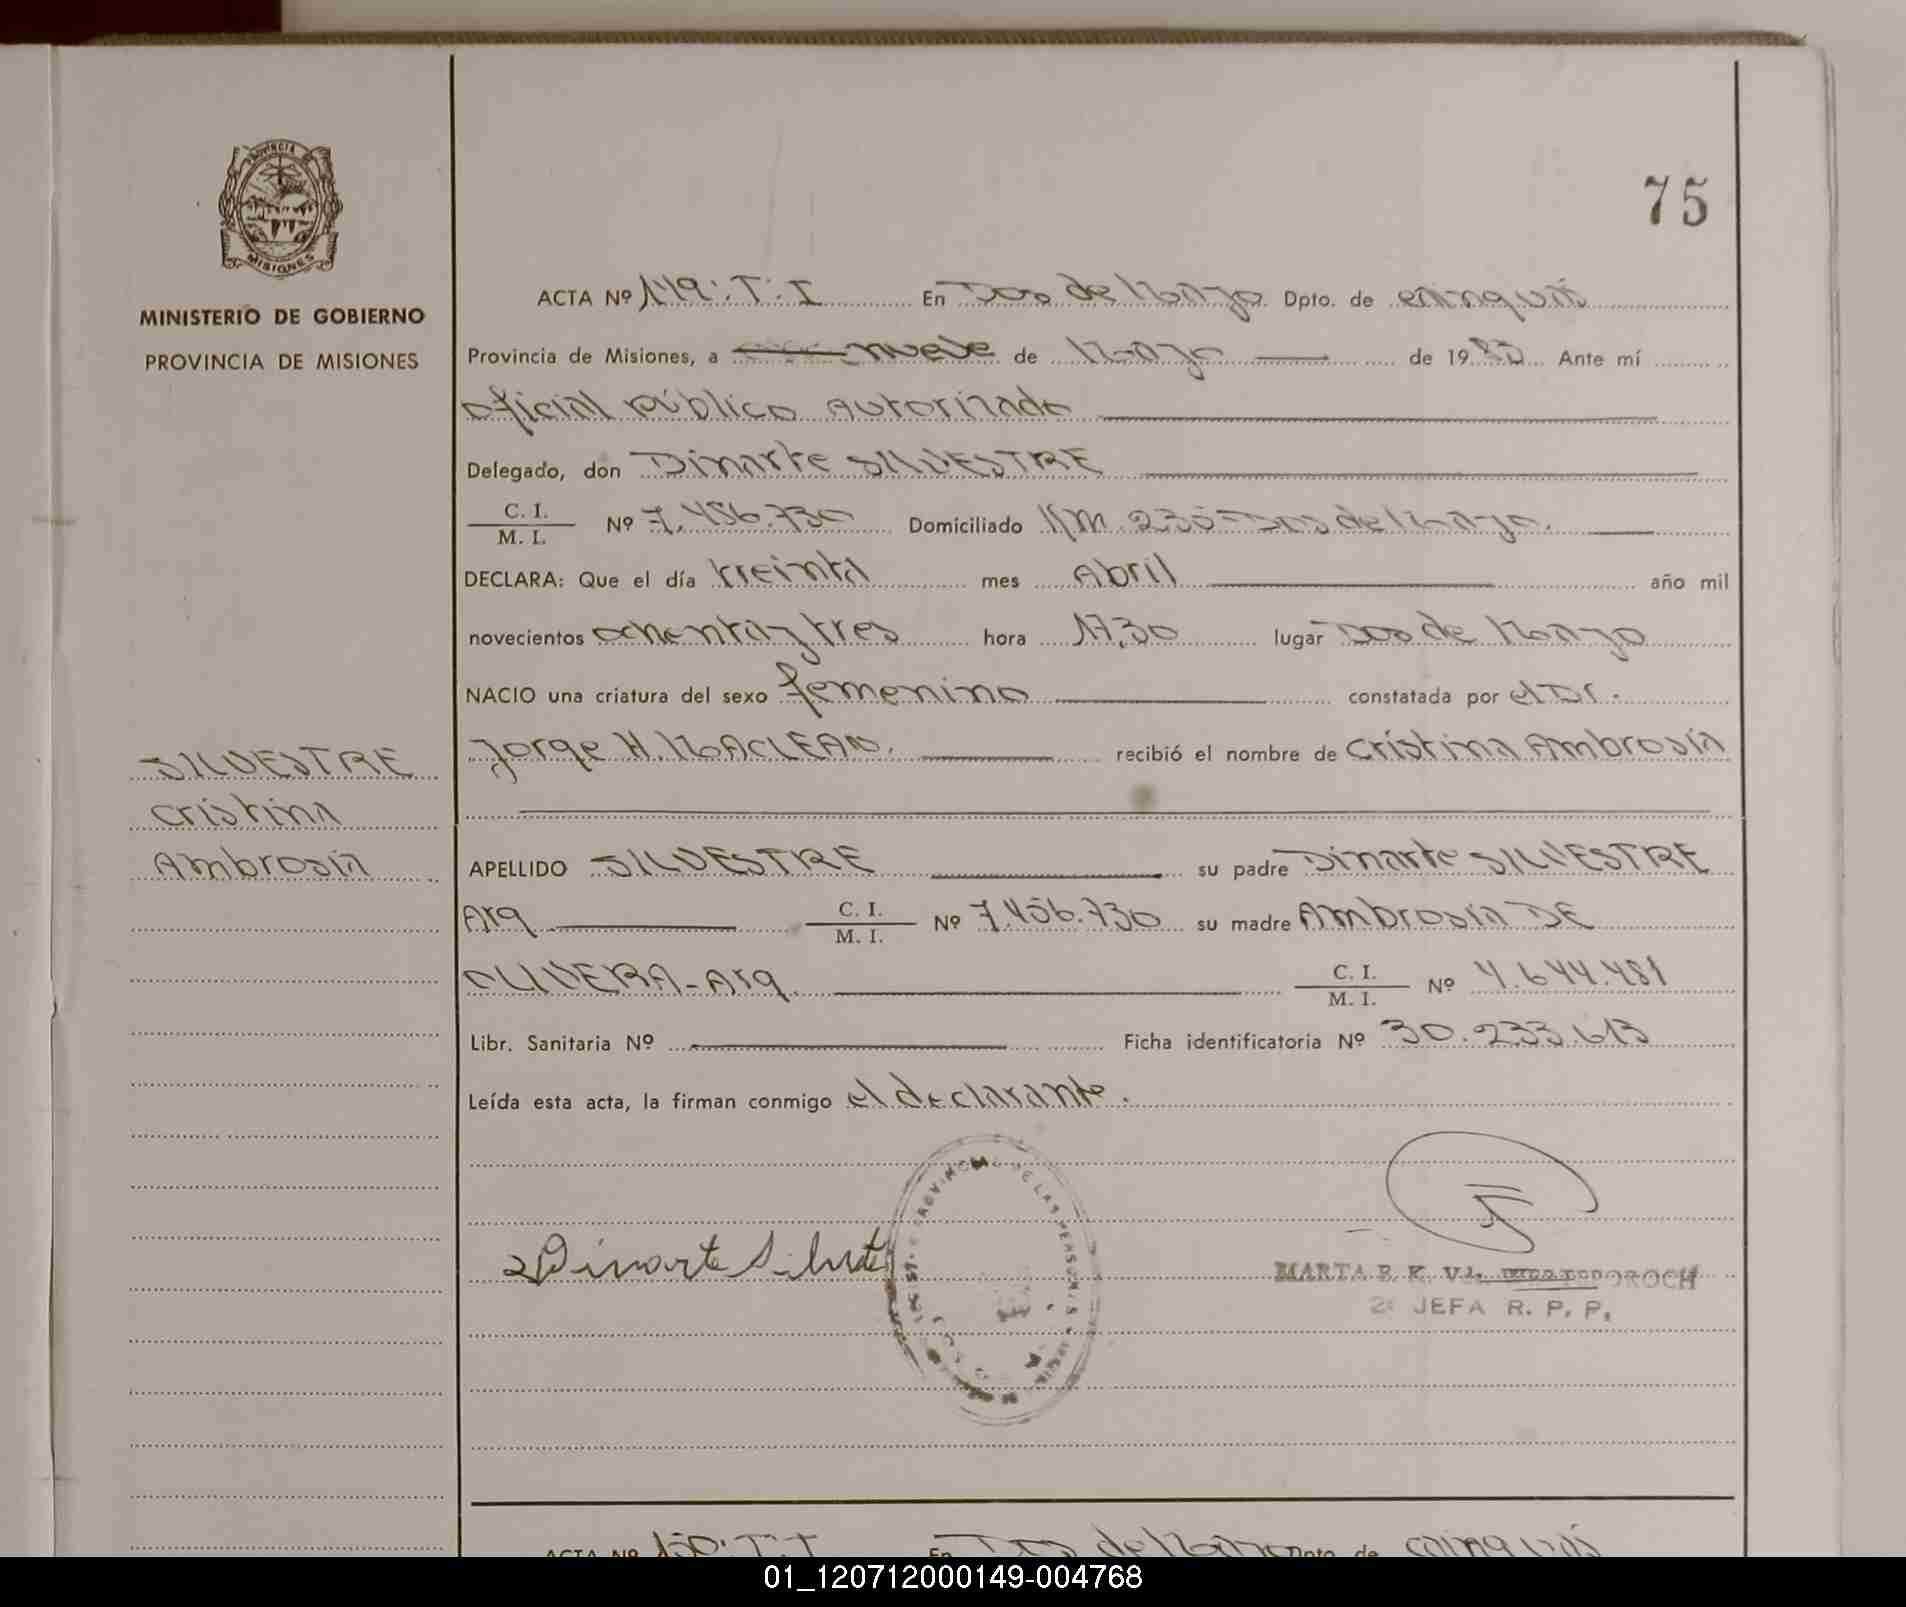 75
PROVINCIA DE
MISIONES
MINISTERIO DE GOBIERNO
PROVINCIA DE MISIONES
SILVESTRE
Cristina
Ambrosia
ACTA Nº 149·T·I En Dos de Mayo Dpto. de Cainguás
Provincia de Misiones, a nueve de Mayo de 1983 Ante mí
oficial público autorizado
Delegado, don Dinarte SILVESTRE
C. I.
M. I. Nº 7.456.730 Domiciliado Km. 235-Dos de Mayo.
DECLARA: Que el día treinta mes Abril año mil
novecientos ochenta y tres hora 17,30 lugar Dos de Mayo
NACIO una criatura del sexo femenino constatada por el Dr.
Jorge H. MACLEAN. recibió el nombre de Cristina Ambrosia
APELLIDO SILVESTRE su padre Dinarte SILVESTRE
Arg C. I.
M. I. Nº 7.456.730 su madre Ambrosia DE
OLIVEIRA-Arg. C. I.
M. I. Nº 4.644.481
Libr. Sanitaria Nº Ficha identificatoria Nº 30.233.613
Leída esta acta, la firman conmigo el declarante.
PROVINCIAL DE LAS PERSONAS
Dinarte Silvestre
MARTA
2ª JEFA R. P. P.
ACTA Nº 150·T·I En Dos de Mayo Dpto. de Cainguás
01_120712000149-004768